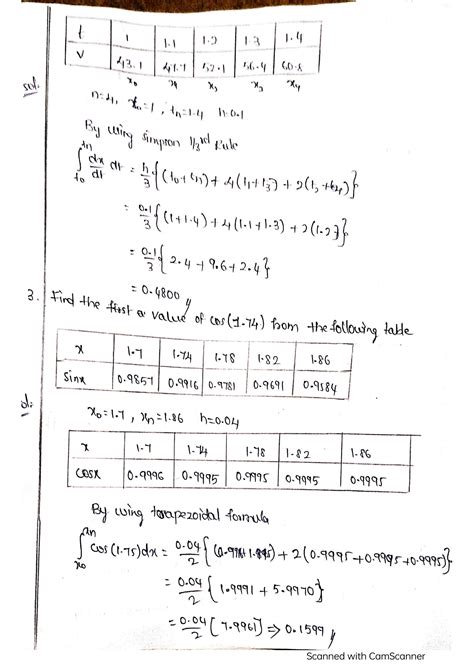 t 1 1.1 1.2 1.3 1.4
v 43.1 47.7 52.1 56.4 60.8
x₀ x₁ x₂ x₃ x₄
sol. n=4, x₀=1, tn=1.4 h=0.1
By using simpson 1/3rd Rule
∫ t₀ tn dx/dt dt = h/3 {(t₀+tn)+4(t₁+t₃)+2(t₂+t₄)}
= 0.1/3 {(1+1.4)+4(1.1+1.3)+2(1.2)}
= 0.1/3 {2.4+9.6+2.4}
= 0.4800
3. Find the first & value of cos(1.74) from the following table
x 1.7 1.74 1.78 1.82 1.86
sinx 0.9857 0.9916 0.9781 0.9691 0.9584
x₀=1.7, xn=1.86 h=0.04
x 1.7 1.74 1.78 1.82 1.86
cosx 0.9996 0.9995 0.9995 0.9995 0.9995
By using torapezoidal formula
∫ x₀ xn cos(1.75)dx = 0.04/2 {( )+2(0.9995+0.9995+0.9995)}
= 0.04/2 {1.9991+5.9970}
= 0.04/2 [7.9961] ⇒ 0.1599
Scanned with CamScanner